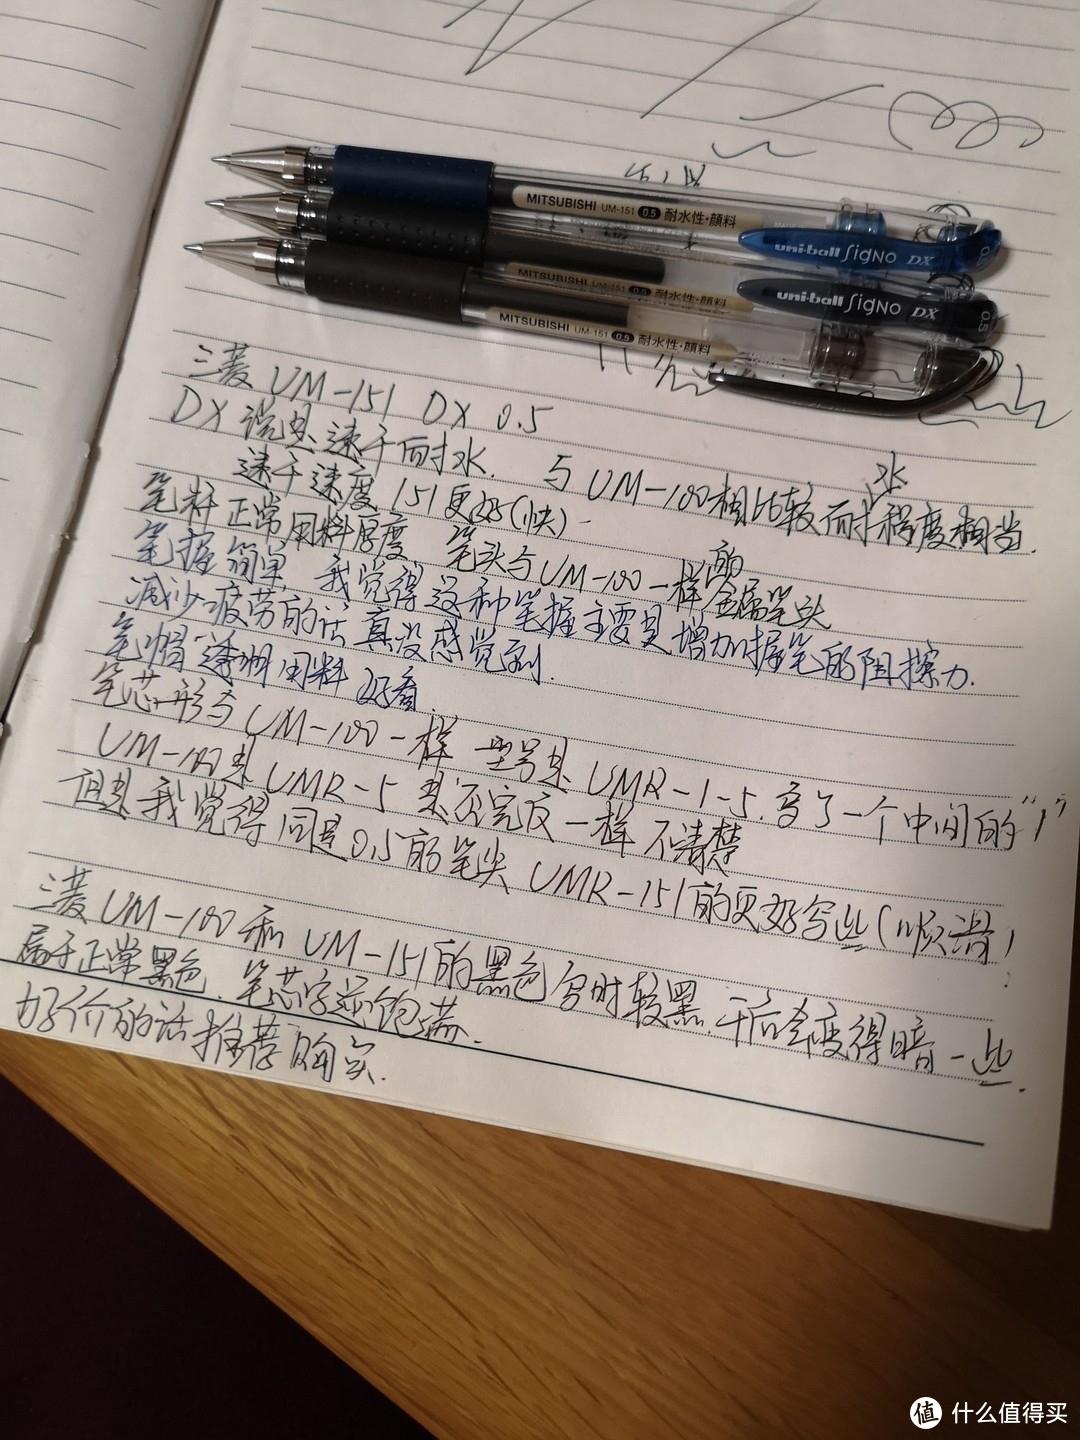 MITSUBISHI UM-151 0.5 耐水性·顔料
uni-ball SigNo DX
MITSUBISHI UM-151 0.5 耐水性·顔料
uni-ball SigNo DX 0.5
MITSUBISHI UM-151 0.5 耐水性·顔料
三菱 UM-151 DX 0.5
DX 说是速干耐水. 与UM-100相比较耐水程度相当.
速干速度 151更好(快).
笔杆正常用料厚度 笔头与UM-100一样的金属笔头
笔握简单 我觉得这种笔握主要是增加握笔的阻擦力.
减少疲劳的话真没感觉到.
笔帽透明用料 好看
笔芯形与UM-100一样 型号是UMR-1-5.多了一个中间的"1"
UM-100是UMR-5 是否完反一样 不清楚
但是我觉得同是0.5的笔头 UMR-151的更好写些(顺滑)
三菱UM-100和UM-151的黑色写时较黑.干后会变得暗一些.
属于正常黑色.笔芯字迹饱满.
好价的话推荐购买.
值 什么值得买